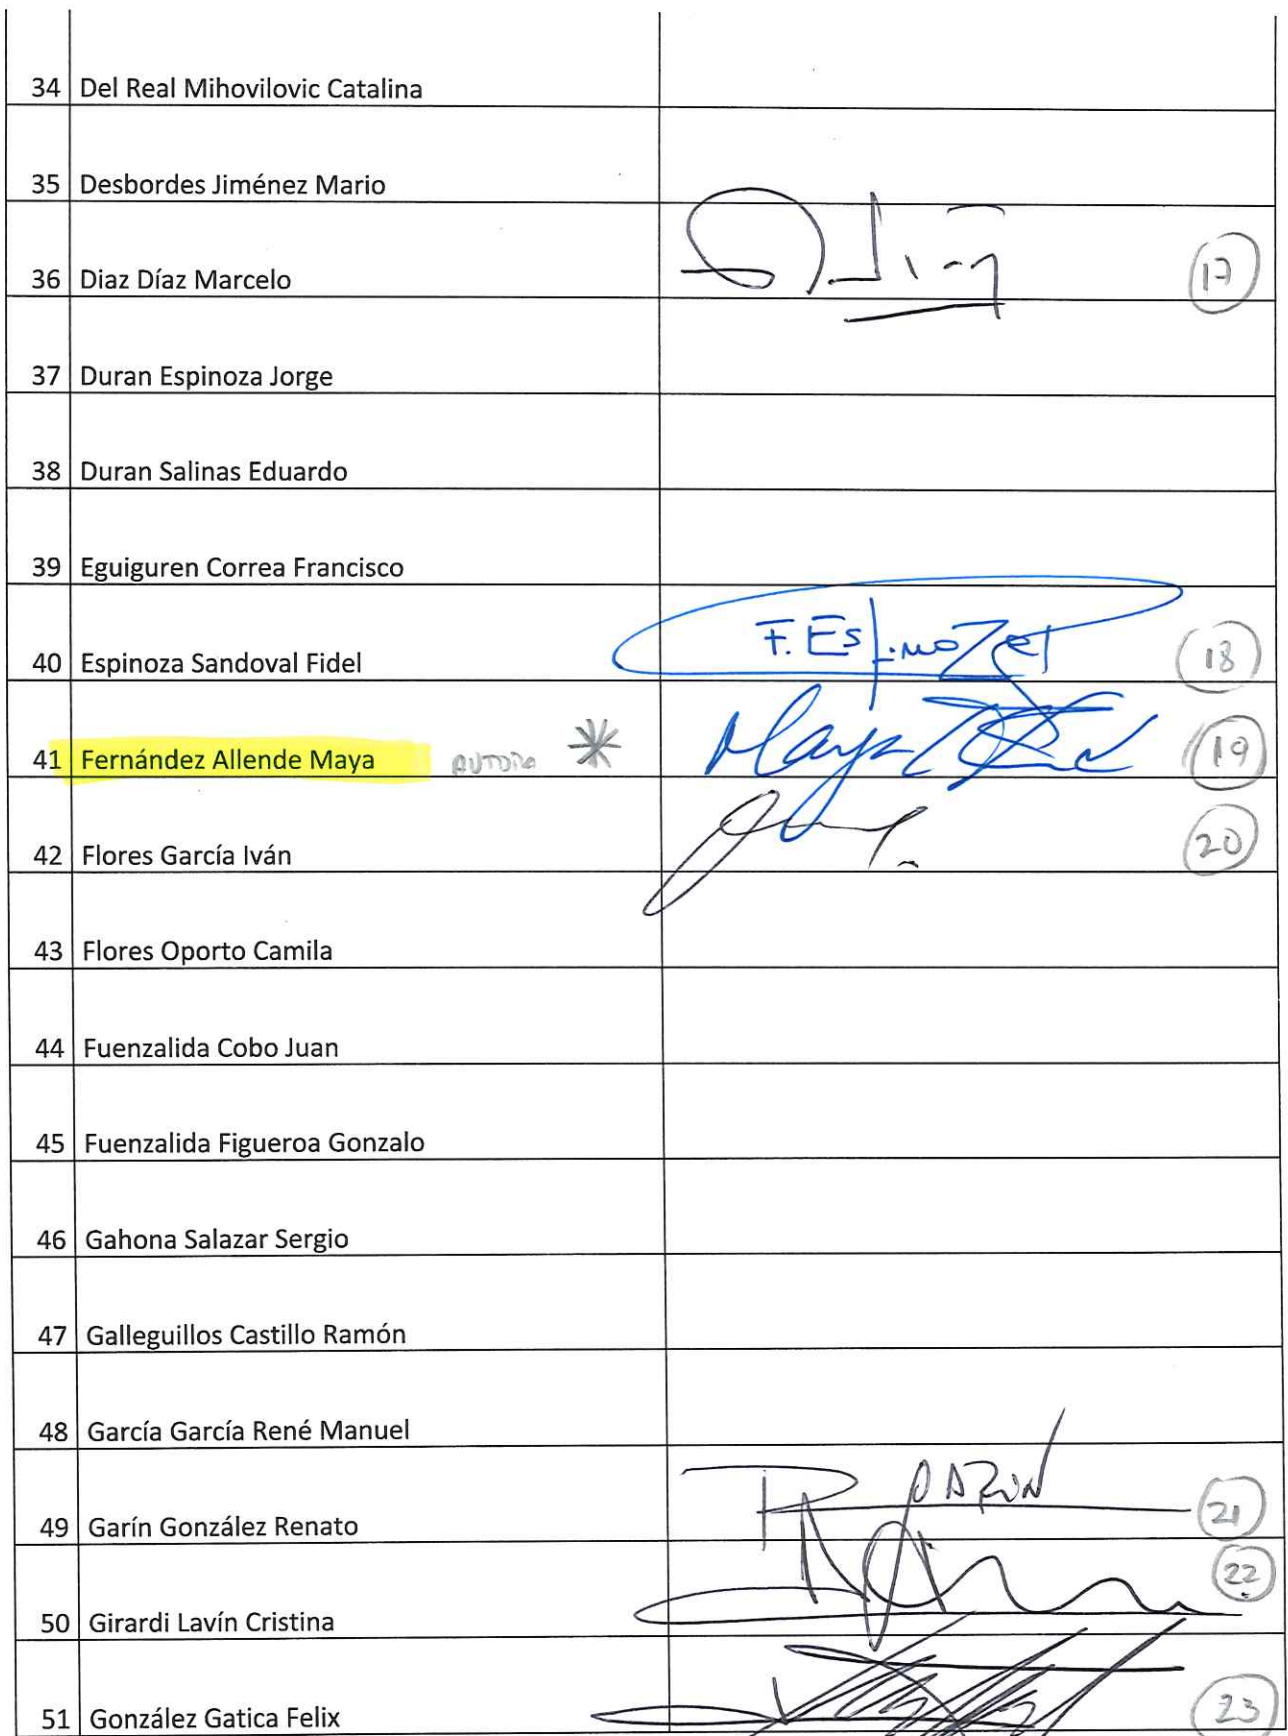 34 Del Real Mihovilovic Catalina
35 Desbordes Jiménez Mario
36 Diaz Díaz Marcelo 17
37 Duran Espinoza Jorge
38 Duran Salinas Eduardo
39 Eguiguren Correa Francisco
40 Espinoza Sandoval Fidel F. Espinoza 18
41 Fernández Allende Maya AUTORA Maya 19
42 Flores García Iván 20
43 Flores Oporto Camila
44 Fuenzalida Cobo Juan
45 Fuenzalida Figueroa Gonzalo
46 Gahona Salazar Sergio
47 Galleguillos Castillo Ramón
48 García García René Manuel
49 Garín González Renato 21
50 Girardi Lavín Cristina 22
51 González Gatica Felix 23